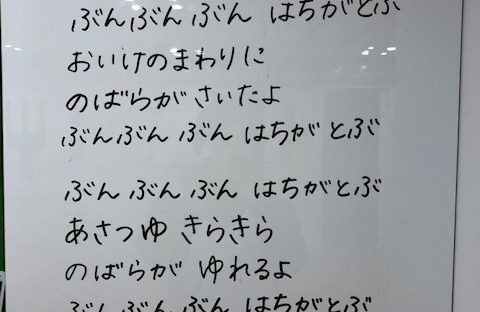 ぶんぶんぶん はちがとぶ
おいけのまわりに
のばらがさいたよ
ぶんぶん ぶん はちがとぶ
ぶん ぶん ぶん はちがとぶ
あさつゆ きらきら
のばらが ゆれるよ
ぶん ぶん ぶん はちがとぶ